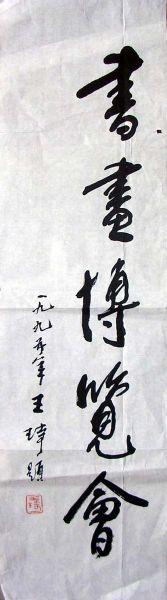 書畫博覽會
一九九五年王琦題